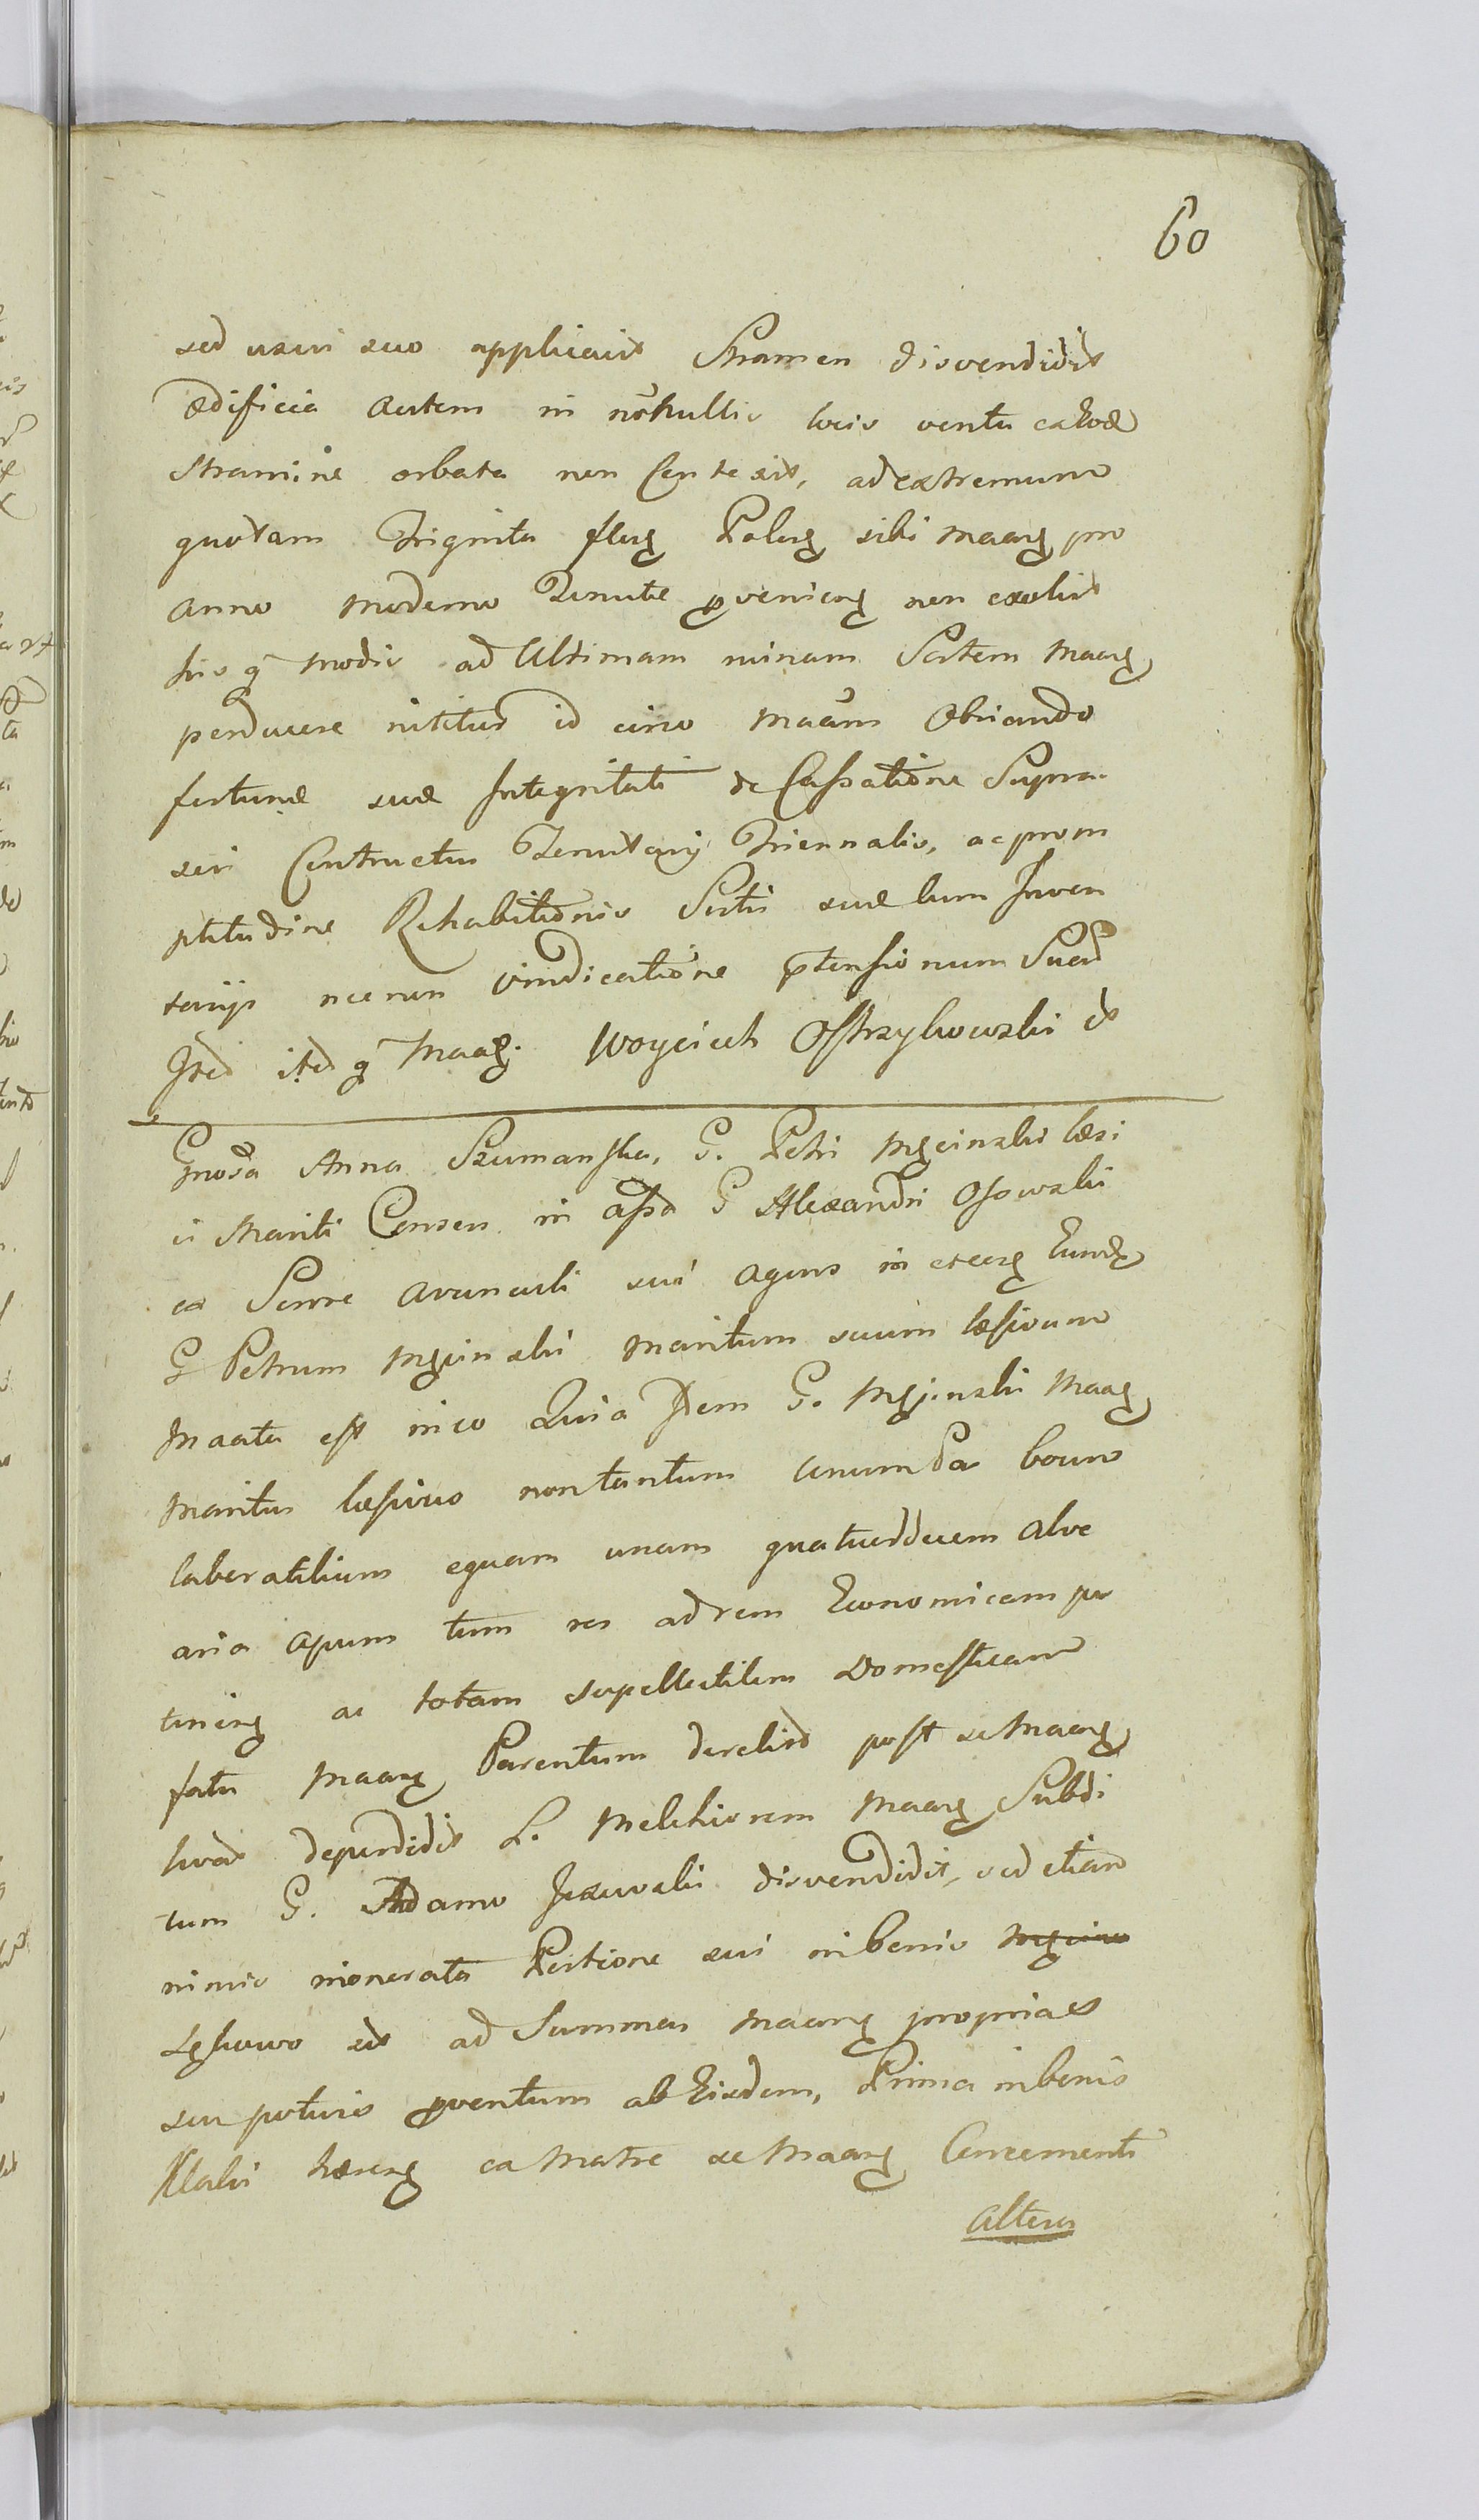 60
sed usui suo applicavit Stramen disvendidit
ædificia autem in nõnullis locis ventu
Stramine orbata non Contexit, ad extremum
quotam Triginta flag Polag sibi maag pro
anno moderno Tenutæ pveniens non exolvit
hisq modis ad Ultimam ruinam Sortem maag
perducere nititur id circo maãns Obviando
fortunæ suæ Integritati de Cassatione Supra
seri Contractus Tenutarij Triennalis, ac prom
ptitudine Rehabitionis Sortis suæ cum Inven
tarijs necnon Vindicatione ptensionum Suar
Itad itdq maag. Woyciech Ostrzykowski
Gnosa Anna Szumanska, G. Petri Mginski
Mariti Consen in assa G Alexandri Osowski
ex Sorore avunculi sui agens in Eundq
G Petrum Mginski maritum suum læsivum
maata est in eo Quia Idem G. Mginski maag
maritus læsivus nontantum unum Par boum
laboratilium equam unam quatuordecim alve
aria apum tum res ad rem Economicam per
tineng ac totam supellectilem Domesticam
fatu maag Parentum derelict post se maag
deperdidit L. Melchiorem maag Subdi
tum G. Adamo disvendidit, sed etiam
nimis inonerata Portione sui in bonis
ut ad Summas maag proprias
seu potius pventum ab Eisdem, Prima in bonis
hæreng ex Matre se maag Concernenti
altera